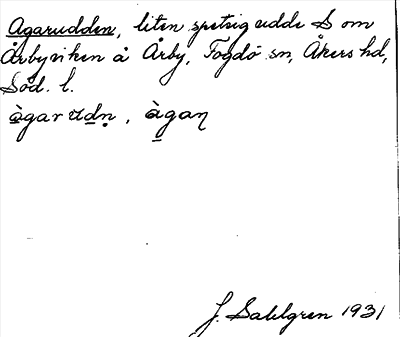 Agarudden, liten spetsig udde S om
Årbyviken å Årby, Fogdö sn, Åkers hd,
Söd. l.
àgar ɯdṇ, àgaɳ
J. Sahlgren 1931